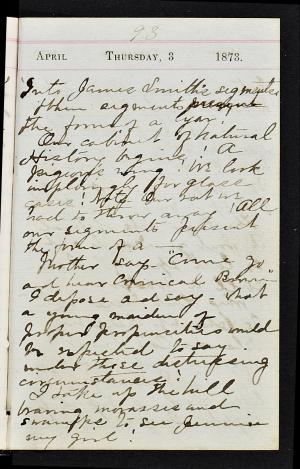 93
APRIL THURSDAY, 3 1873.
Into James Smith's segments
if them segments present
the form of a lyar.
Our cabinet of Natural
History begins! A
Pigeons wing! We look
imploringly for glass
cases! Our rat we
had to throw away! All
our segments present
the form of a —
Mother say "Come go
and hear Comical Brown"
I depose and say - what
a young maiden of
proper proprieties would
be expected to say
under those distressing
circumstances.
I take up the hill
braving morasses and
swamps to see Jennie
my girl!